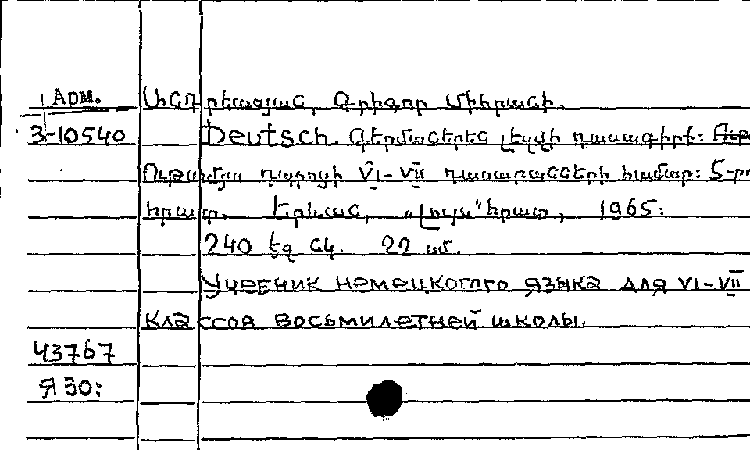 Арм. Անդրեասյան, Գրիգոր Միհրանի.
3-10540 Deutsch. Գերմաներեն լեզվի դասագիրք:
Ութամյա դպրոցի VI-VII դասարանների համար: 5-րդ
հրատ. Երևան, „Լույս" հրատ., 1965:
240 էջ նկ. 22 սմ.
Учебник немецкого языка для VI-VII
классов восьмилетней школы.
43767
Я 30: